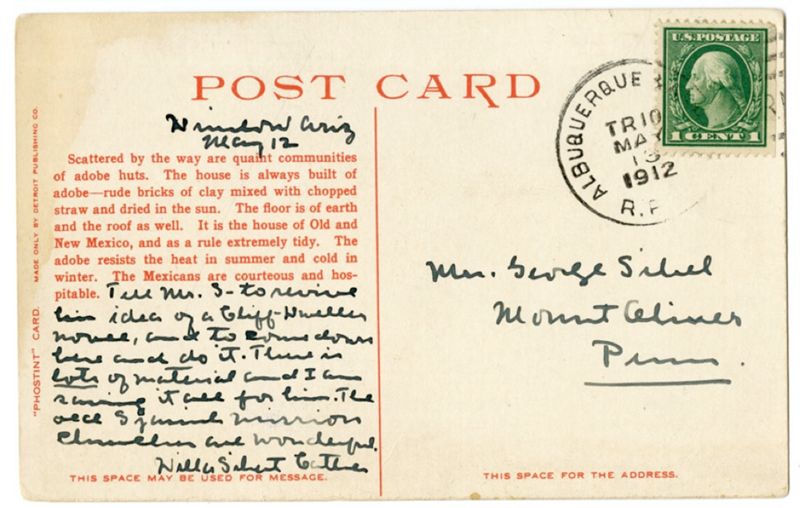 POST CARD
Winslow Ariz
May 12
Scattered by the way are quaint communities
of adobe huts. The house is always built of
adobe—rude bricks of clay mixed with chopped
straw and dried in the sun. The floor is of earth
and the roof as well. It is the house of Old and
New Mexico, and as a rule extremely tidy. The
adobe resists the heat in summer and cold in
winter. The Mexicans are courteous and hos-
pitable.
Tell Mr. S- to revive
his idea of a Cliff-Dweller
novel, and to come down
here and do it. There is
lots of material and I am
saving it all for him. The
old Spanish mission
churches are wonderful.
Willa Sibert Cather
THIS SPACE MAY BE USED FOR MESSAGE.
"PHOSTINT" CARD.
MADE ONLY BY DETROIT PUBLISHING CO.
U.S. POSTAGE
1 CENT 1
ALBUQUERQUE
TR10
MAY
13
1912
R.P
Mrs. George Seibel
Mount Oliver
Penn.
THIS SPACE FOR THE ADDRESS.